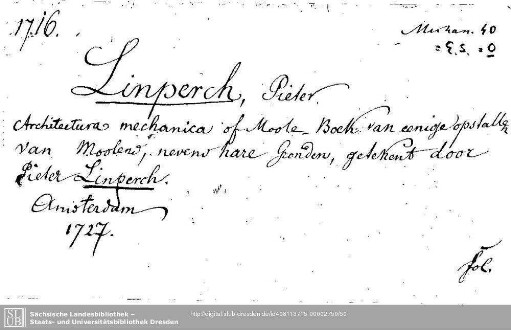 17.16.
Mechan. 40
Linperch, Pieter.
Architectura mechanica of Moole-Boek van eenige opstallen
van Moolens, nevens hare Gronden, getekent door
Pieter Linperch.
Amsterdam
1727.
fol.
Sächsische Landesbibliothek –
Staats- und Universitätsbibliothek Dresden